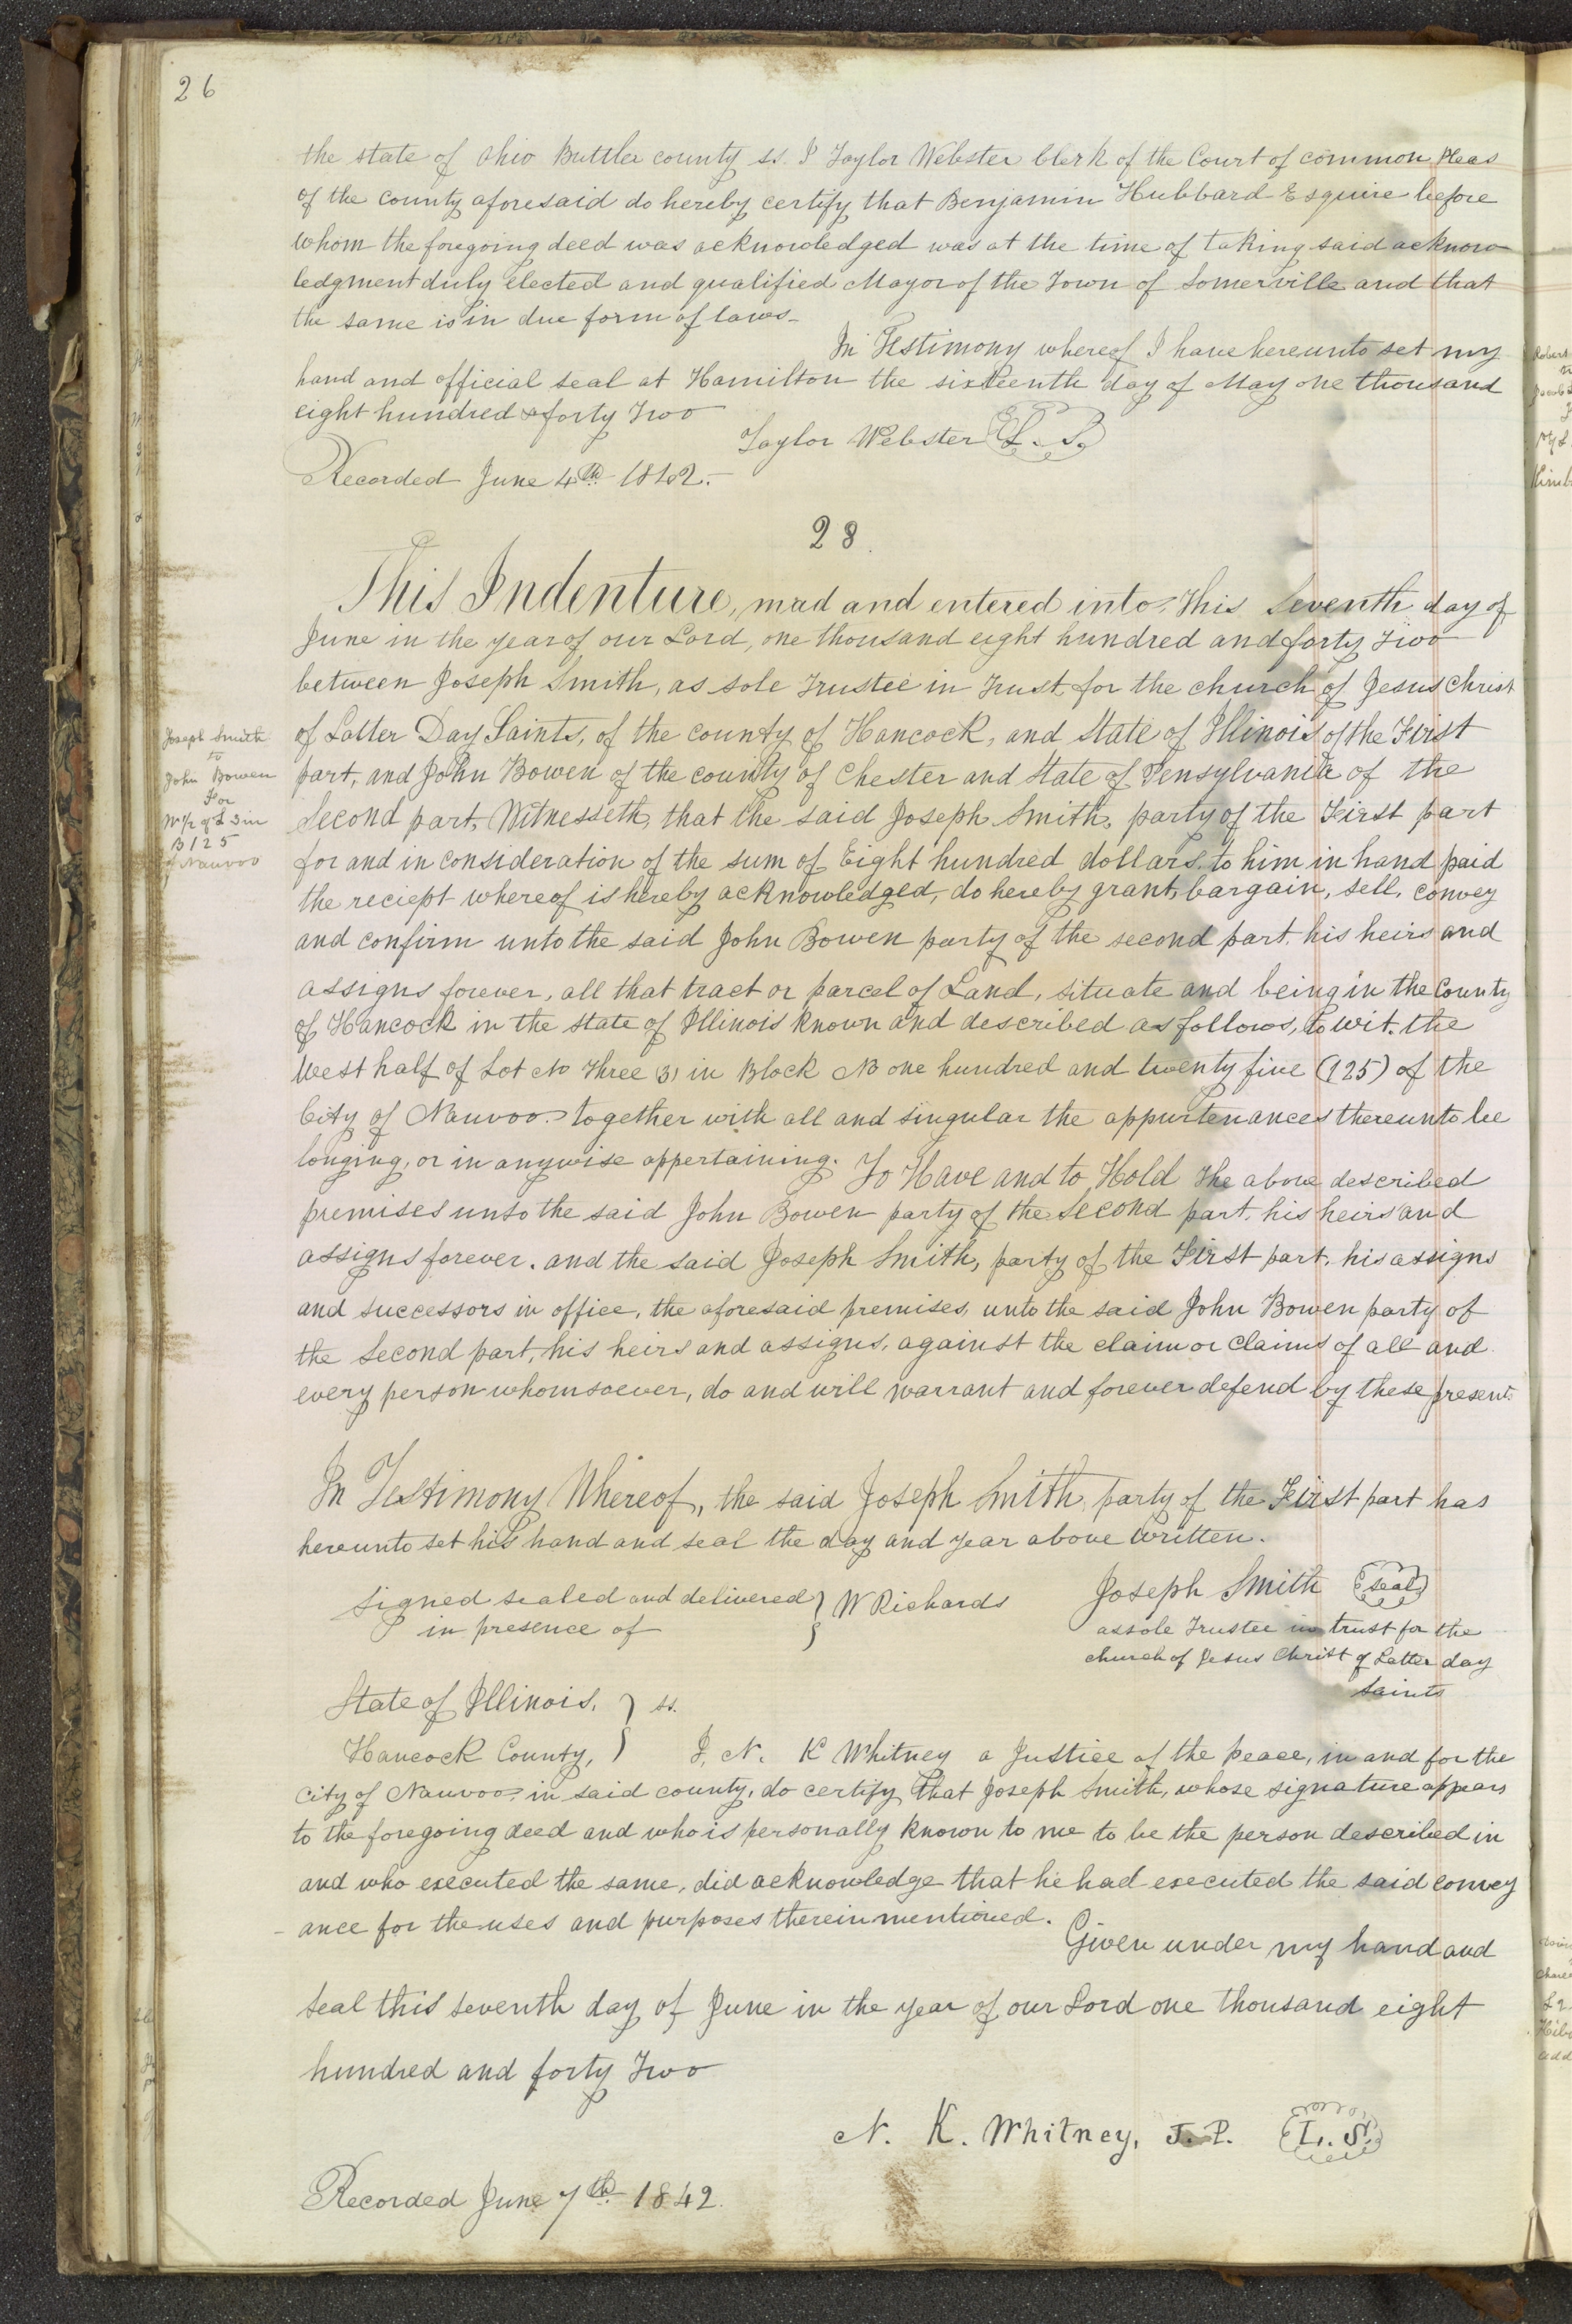 26
the state of Ohio Buttler county ss. I Taylor Webster Clerk of the Court of common Pleas
of the county aforesaid do hereby certify that Benjamin Hubbard Esquire before
whom the foregoing deed was acknowledged was at the time of taking said acknow
ledgment duly elected and qualified Mayor of the Town of Somerville and that
the same is in due form of laws-
In Testimony whereof I have hereunto set my
hand and official seal at Hamilton the sixteenth day of May one thousand
eight hundred & forty Two
Taylor Webster L. S.
Recorded June 4th 1842.-
28.
This Indenture, mad and entered into, This Seventh day of
June in the year of our Lord, one thousand eight hundred and forty Two
between Joseph Smith, as sole Trustee in Trust for the church of Jesus Christ
of Latter Day Saints, of the county of Hancock, and State of Illinois of the First
part, and John Bowen of the county of Chester and State of Pensylvania of the
Second part, Witnesseth, that the said Joseph Smith, party of the First part
for and in consideration of the sum of Eight hundred dollars, to him in hand paid
the reciept whereof is hereby acknowledged, do hereby grant, bargain, sell, convey
and confirm unto the said John Bowen party of the second part, his heirs and
assigns forever, all that tract or parcel of Land, situate and being in the County
of Hancock in the state of Illinois known and described as follows, to wit. the
West half of Lot No Three (3) in Block No one hundred and twenty five (125) of the
City of Nauvoo together with all and singular the appurtenances thereunto be
longing, or in anywise appertaining. To Have and to Hold The above described
premises unto the said John Bowen party of the Second part, his heirs and
assigns forever. and the said Joseph Smith, party of the First part, his assigns
and successors in office, the aforesaid premises, unto the said John Bowen party of
the Second part, his heirs and assigns, against the claim or claims of all and
every person whomsoever, do and will warrant and forever defend by these presents
In Testimony Whereof, the said Joseph Smith, party of the First part has
hereunto set his hand and seal the day and year above written.
Signed sealed and delivered } W Richards Joseph Smith (seal)
in presence of
as sole Trustee in trust for the
church of Jesus Christ of Latter day
Saints
State of Illinois, } ss.
Hancock County, } I, N. K Whitney a Justice of the peace, in and for the
city of Nauvoo, in said county, do certify that Joseph Smith, whose signature appears
to the foregoing deed and who is personally known to me to be the person described in
and who executed the same, did acknowledge that he had executed the said convey
- ance for the uses and purposes therein mentioned. Given under my hand and
seal this seventh day of June in the year of our Lord one thousand eight
hundred and forty Two
N. K. Whitney, J. P. L. S.
Recorded June 7th 1842.
Joseph Smith
to
John Bowen
For
W 1/2 of L 3 in
B 125
of Nauvoo